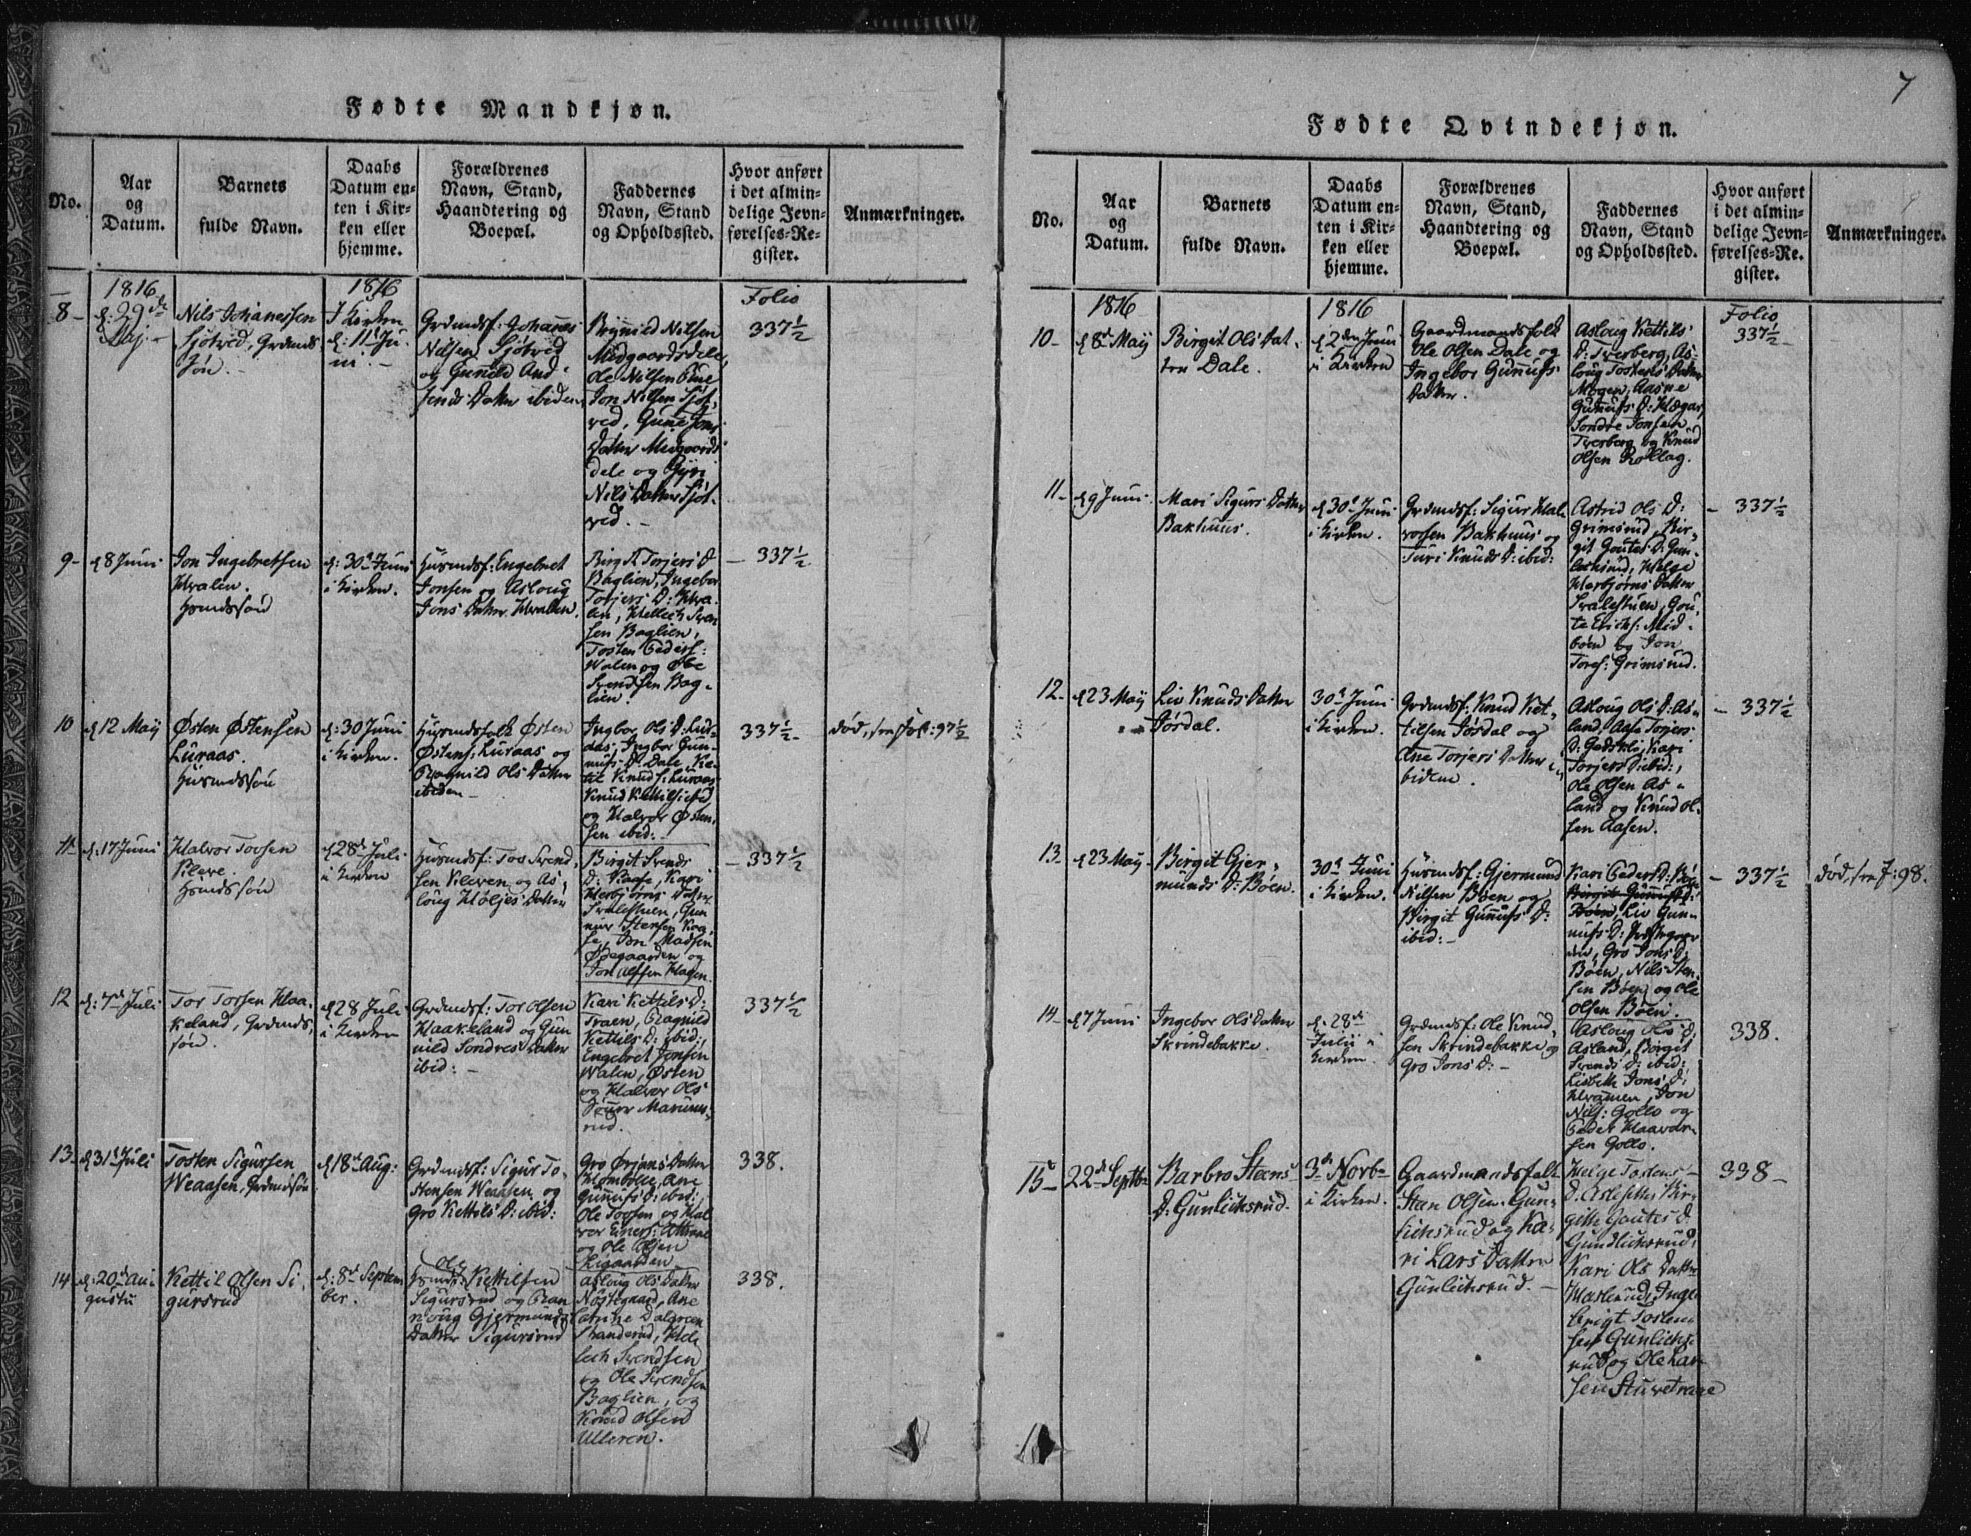 7
Fødte Mandkjøn.
No.
Aar
og
Datum.
Barnets
fulde Navn.
Daabs
Datum en-
ten i Kir-
ken eller
hjemme.
Forældrenes
Navn, Stand,
Haandtering og
Boepæl.
Faddernes
Navn, Stand
og Opholdssted.
Hvor anført
i det almin-
delige Jevn-
førelses-Re-
gister.
Anmærkninger.
8-
1816
d: 29de
Maj.-
Nils Johanessen
Sjøtved, Grdmds
Søn.-
1816
I Kirken
d: 11te Ju-
ni.-
Grdmdsf: Johanes
Nilsen Sjøtved
og Gunild And-
fends Datter ibidem
Brynild Nilsen
Midgaardsdele,
Ole Nilsen
Jon Nilsen Sjøt-
ved, Gune Jons
Datter Midgaards
dele og Gyri
Nils Datter Sjøt-
ved.-
Folio
337½
9-
d 8 Juni
Jon Ingebretsen
Hvalen.
Hsmdssøn
d: 30te Juni
i Kirken.
Husmdsf: Engebret
Jonsen og Asloug
Jons Datter Hvalen.
Birgit Torjers D
Baglien, Ingebor
Torjers D: Hva-
len, Hellech Sven
sen Baglien,
Tosten Peders:
Walen og Obe
Svendsen Bag-
lien.
- 337½
10
d 12 Maÿ
Østen Østensen
Luraas.
Husmdssøn
d: 30 Juni
i Kirken.
Husmdsfolk Østen
Østens: Luraas og
Ragnild Ols Datter
ibiden-
Ingbor Ols D: Lur-
aas, Ingbor Gun-
nufs: D: Dale, Ke-
til Knuds: Luraas
Knud Kettils: ibid
og Halvor Østen-
sen ibid:-
337½-
død, see fol: 97½
11
d: 17 Juni
Halvor Torsen
Kleve.
Hsmdssøn
d 28de Juli
i Kirken
Husmdsf: Tor Svend-
sen Kleven og As-
loug Høljes Datter
Birgit Svends
D: Kaase, Kari
Herbjørns Datter
Svalestuen, Gun
nuf Stensen Kaa-
se, Jon Madsen
Øvegaarden og
Jon Ulffsen Hagen.
- 337½
12
d: 7de Juli
Tor Torsen Haa-
keland, Grdmds-
søn.
d 28 Juli
i Kirken
Grdmdsf: Tor Olsen
Haakeland og Gun
nild Sondres Datter
ibid:-
Kari Kettils D:
Traen, Ragnild
Kettils D: ibid:
Engebret Jonsen
Walen, Østen
og Halvor Ols
Sønner Marum-
rud.
337½
13-
d 31te Juli
Tosten Sigursen
Weaasen, Grdmdssøn
d 18de Aug:
Grdmdsf: Sigur To-
stensen Weaasen og
Gro Kettils D: ibid:
Gro Ørjans Datter
Momhølle, Ane
Gunnufs D: ibid:,
Ole Torsen og Hal
vor Eners:
og Ole Olsen
338.
14
d: 20de Au-
gusti
Kettil Olsen Si-
gursrud
d: 8de Septem
ber.
Ole
Hsmdsf: Kettilsen
Sigursrud og Ran
noug Gjermunds
Datter Sigursrud
Asloug Ols Datter
Nøstegaard, Ane
Stranderud, Hel
lech Svendsen
og Ole Svendsen
Baglien, og
Knud Olsen
Ulleren.
338.
Fødte Qvindekjøn.
No.
Aar
og
Datum.
Barnets
fulde Navn.
Daabs
Datum en-
ten i Kir-
ken eller
hjemme.
Forældrenes
Navn, Stand,
Haandtering og
Boepæl.
Faddernes
Navn, Stand
og Opholdssted.
Hvor anført
i det almin-
delige Jevn-
førelses-Re-
gister.
Anmærkninger.
10-
1816
d 8de Maÿ
Birgit Ols Dat-
ter Dale.
1816
d 2den Juni
i Kirken
Gaardmandsfolk
Ole Olsen Dale og
Ingebor Gunufs
Datter.
Asloug Kettils
D: Tverberg, As-
loug Tostens Datter
Mogen, Aasne
Gunufs D: Hægar,
Sondre Jonsen
Tverberg og Knud
Olsen Rollag.
Folio
337½-
11-
d 9 Juni
Mari Sigurs Datter
Bakhuus.
d 30te Juni
i Kirken.
Grdmdsf: Sigur Hal-
vorsen Bakhuus og
Turi Knuds D: ibid:
Astrid Ols D:
Grimsrud, Bir-
git Goutes D: Gun-
leiksrud, Helge
Herbjørns Datter
Svalestuen, Gou-
te Erichs: Mid-
bøen og Jon
Tores: Grimsrud.
- 337½
12-
d 23 Maÿ
Liv Knuds Datter
Jørdal.
30te Juni
i Kirken.
Grdmdsf: Knud Ket-
tilsen Jørdal og
Ane Torjers Datter i-
bidem.
Asloug Ols D: As-
land, Aase Torjers
D: GaDsklo, Kari
Torjers D: ibid:,
Ole Olsen As-
land og Knud Ol-
sen Aasen.
- 337½
13-
d 23 Maÿ-
Birgit Gjer-
munds D: Bøen.
30te Juni
i Kirken.
Husmdsf: Gjermund
Nilsen Bøen og
Birgit Gunufs D:
ibid:-
Kari Peders D: Bøen
Birgit Gunnufs D:
Bøen, Liv Gun-
nufs D:
Gro Jons D:
Bøen, Nils Sten-
sen Bøen og Ole
Olsen Bøen.
- 337½
død, see f: 98.
14-
d 7 Juni
Ingebor Ols Datter
Skrindebakke.
d: 28de
Julii i
Kirken.
Grdmdsf: Ole Knud-
sen Skrindebakke og
Gro Jons D:-
Asloug Ols D:
Asland, Birgit
Svends D: ibid:
Lisbeth Jons D:
Hvamen, Jon
Nils: Gollo og
Peder Haavar-
sen Gollo.
338.
15-
22de Septbr
Barbro Steens
D: Gunlichsrud.
3de Novb-
i Kirken.
Gaardmandsfolk
Steen Olsen Gun-
lichsrud og Ka-
ri Lars Datter
Gunlichsrud.-
Helge Tostens
D: Aslefette, Bir-
gitte Goutes D
Gundlichsrud,
Kari Ols Datter
Haslerud, Inge-
brigt Tosten-
sen Gunlichs-
rud og Ole Lar-
sen Stuvetraae
338-